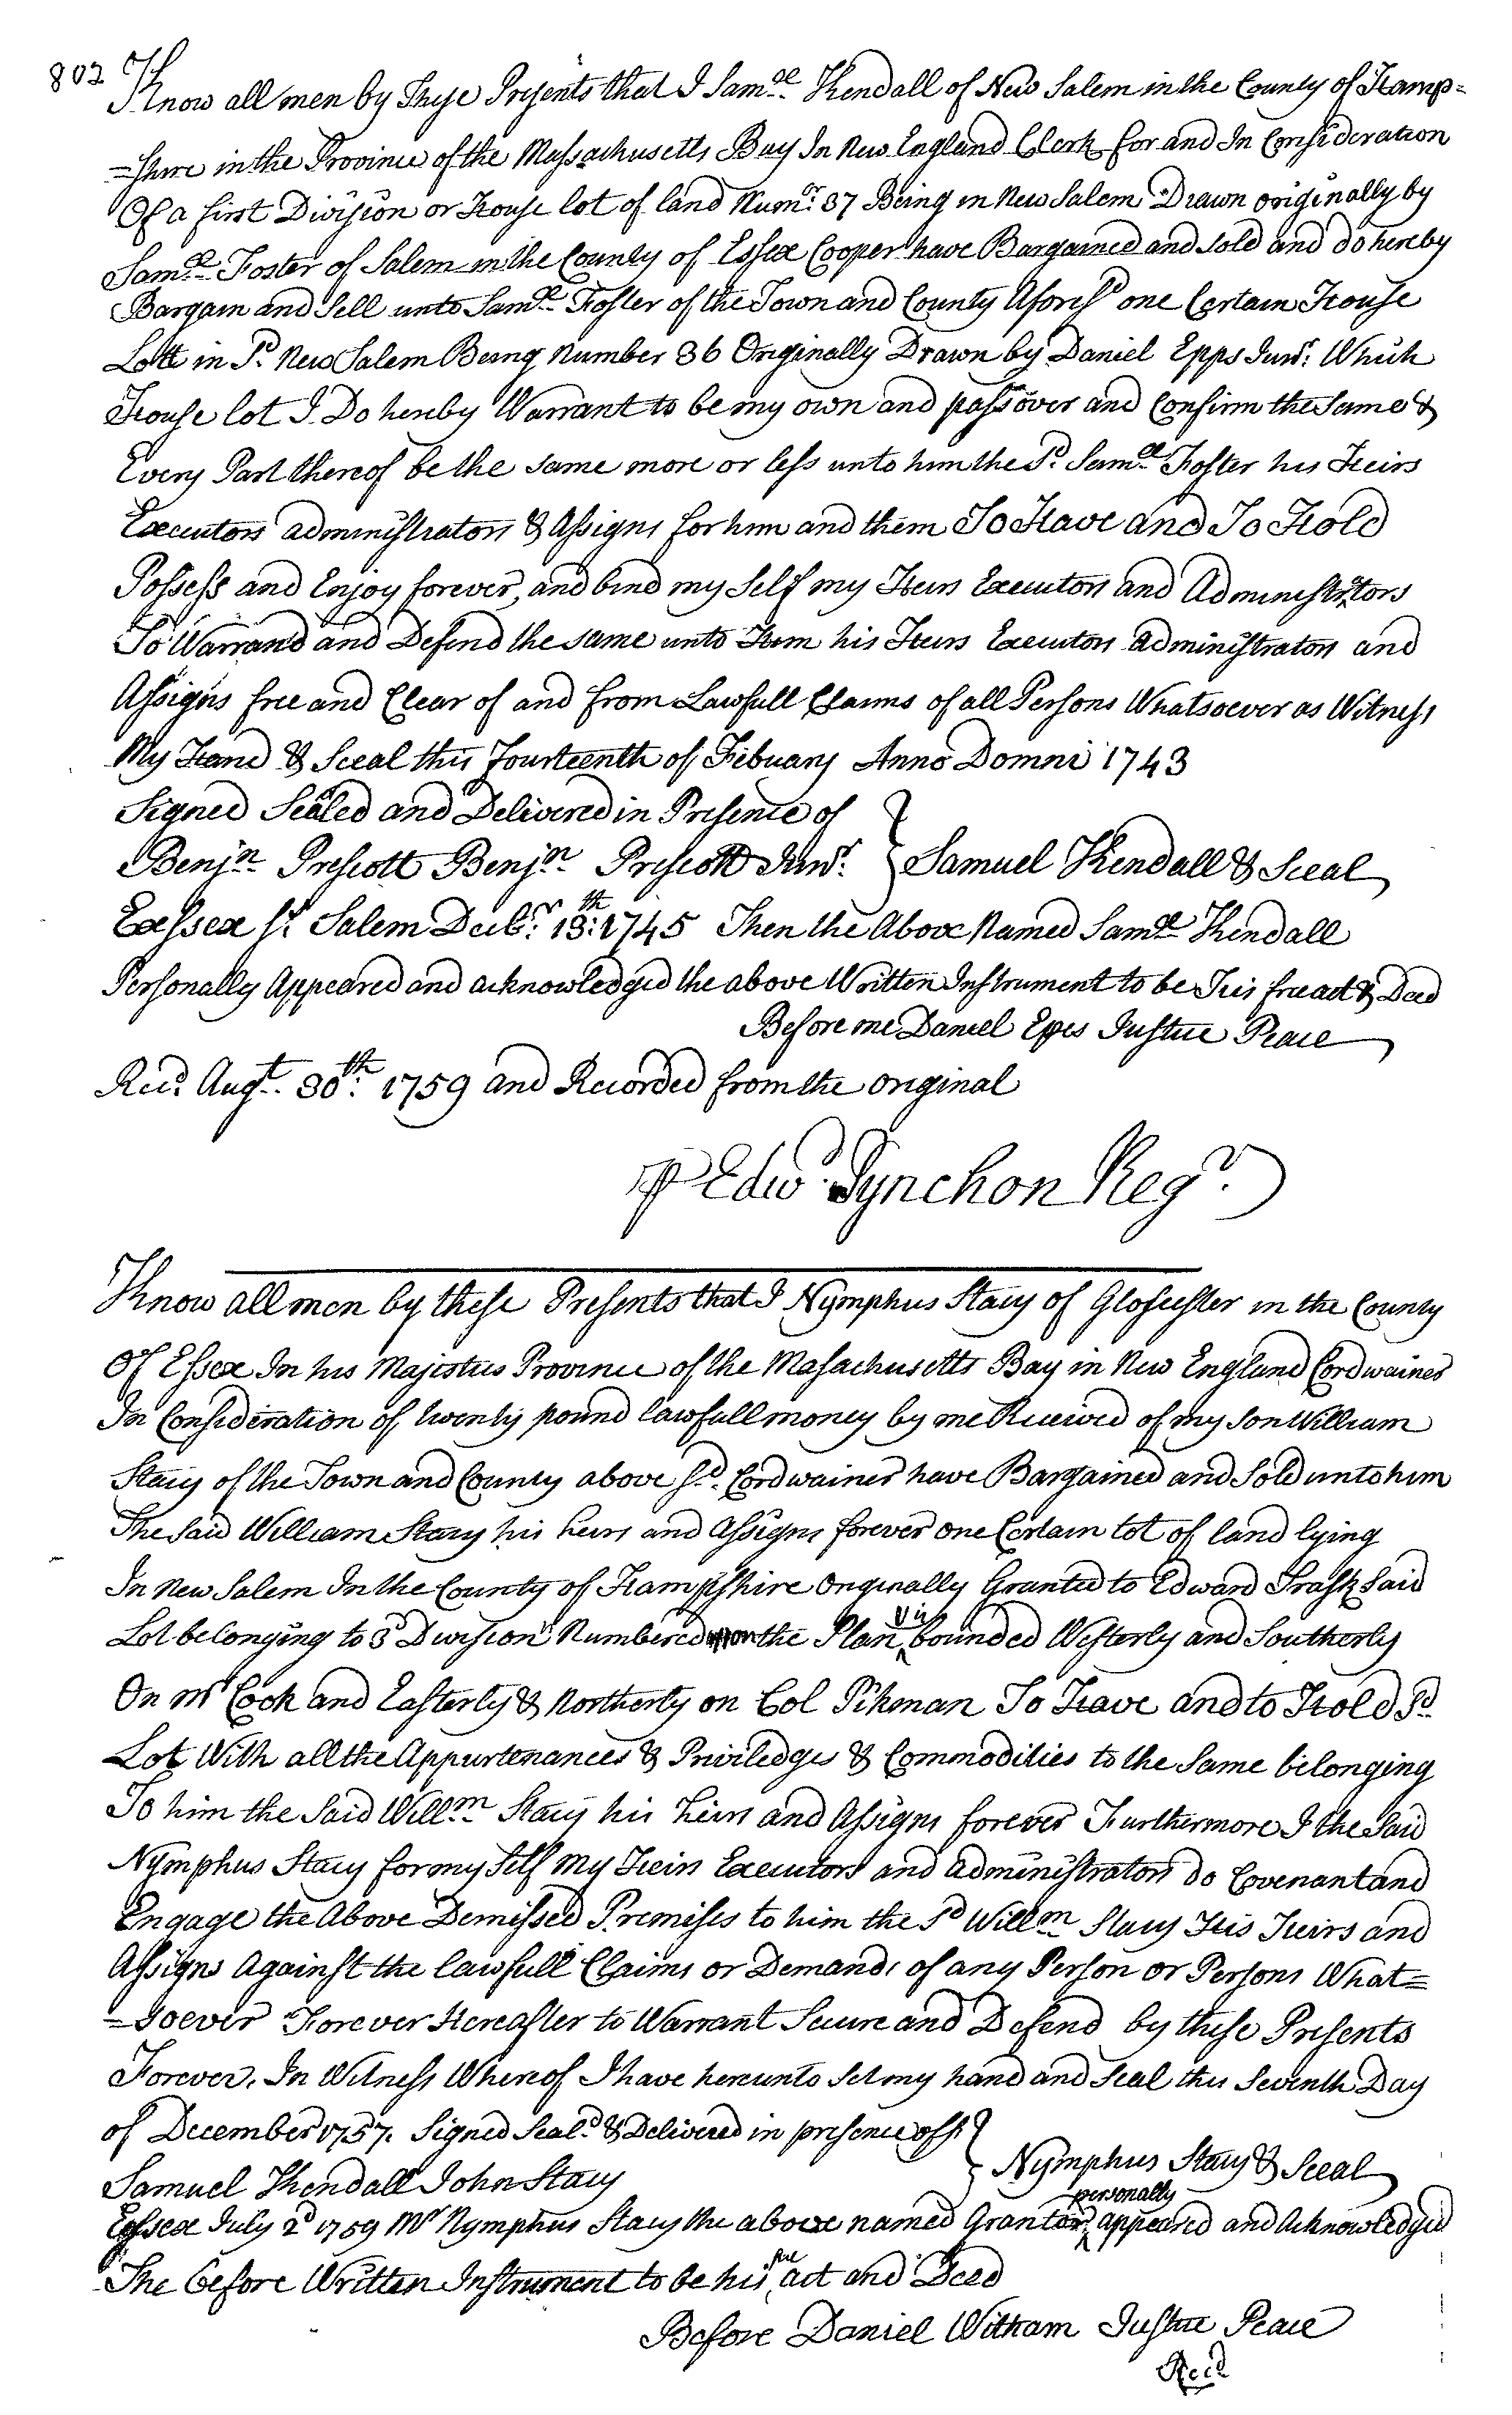 802
Know all men by These Presents that I Sam.ll Kendall of New Salem in the County of Hamp=
=shire in the Province of the Massachusetts Bay In New England Clerk for and In Consideration
Of a first Division or House lot of land Num.r 37 Being in New Salem Drawn originally by
Sam.ll Foster of Salem in the County of Essex Cooper have Bargained and Sold and do hereby
Bargain and Sell unto Sam.ll Foster of the Town and County Afores.d one Certain House
Lott in S.d New Salem Being Number 36 Originally Drawn by Daniel Epps Jun.r Which
House lot I Do hereby Warrant to be my own and pass over and Confirm the Same &
Every Part thereof be the same more or less unto him the S.d Sam.ll Foster his Heirs
Executors administrators & Assigns for him and them To Have and To Hold
Possess and Enjoy forever, and bind my Self my Heirs Executors and Administrators
To Warrand and Defend the same unto Him his Heirs Executors Administrators and
Assigns free and Clear of and from Lawfull Claims of all Persons Whatsoever as Witness
My Hand & Seal this Fourteenth of Febuary Anno Domni 1743
Signed Sealed and Delivered in Presence of
Benj.n Prescott Benj.n Prescott Jun.r } Samuel Kendall & Seal
Essex Ss. Salem Decb.r 13.th 1745 Then the Above Named Sam.ll Kendall
Personally Appeared and acknowledged the above Written Instrument to be His free act & Deed
Before me Daniel Epes Justice Peace
Rec.d Aug.t 30.th 1759 and Recorded from the original
⅌ Edw.d Pynchon Reg.r
Know all men by these Presents that I Nymphus Stacy of Glosester in the County
Of Essex In his Majesties Province of the Masachusetts Bay in New England Cordwainer
In Consideration of twenty pound lawfull money by me Received of my Son William
Stacy of the Town and County above s.d Cordwainer have Bargained and Sold unto him
The Said William Stacy his heirs and Assigns forever one Certain lot of land lying
In New Salem In the County of Hampshire Originally Granted to Edward Trask Said
Lot belonging to 3d Division Numbered upon the Plan ^ bounded Westerly and Southerly
On Mr Cook and Easterly & Northerly on Col Pikman To Have and to Hold S.d
Lot With all the Appurtenances & Priviledges & Commodities to the Same belonging
To him the Said Will.m Stacy his heirs and Assigns forever Furthermore I the Said
Nymphus Stacy for my Self My Heirs Executors and administrators do Covenant and
Engage the Above Demissed Premises to him the S.d Will.m Stacy His Heirs and
Assigns Against the lawfull Claims or Demands of any Person or Persons What=
=soever Forever Hereafter to Warrant Secure and Defend by these Presents
Forever. In Witness Whereof I have hereunto Set my hand and Seal this Seventh Day
of December 1757. Signed Seal.d & Delivered in presence off }
Nymphus Stacy & Seal
Samuel Kendall John Stacy
Essex July 2d 1759 Mr Nymphus Stacy the above named Grantor ^personally appeared and Acknowledged
The before Written Instrument to be his ^free act and Deed
Before Daniel Witham Justice Peace
Rec.d